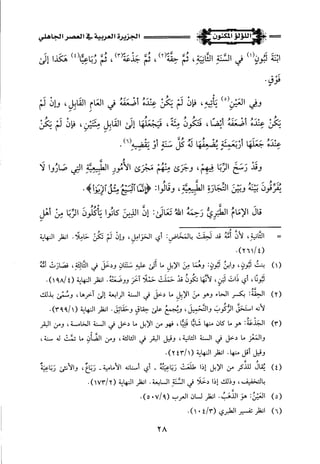 اللؤلؤ المكنون
الجزيرة العربية في العصر الجاهلي
ابنة لبون(١) في السنة الثانية، ثم حقة(٢)، ثم جذعة(٣)، ثم رباعيا(٤) هكذا إلى
فوق.
وفي العين(٥) يأتيه، فإن لم يكن عنده أضعفه في العام القابل، وإن لم
يكن عنده أضعفه أيضا، فتكون مئة، فيجعلها إلى القابل مئتين، فإن لم يكن
عنده جعلها أربعمئة يضعفها له كل سنة أو يقضيه(٦).
وقد رسخ الربا فيهم، وجرى منهم مجرى الأمور الطبيعية التي صاروا لا
يفرقون بينه وبين التجارة الطبيعية، وقالوا: ﴿إنما البيع مثل الربا﴾.
قال الإمام الطبري رحمه الله تعالى: إن الذين كانوا يأكلون الربا من أهل
= الثانية، لأن أمه قد لحقت بالمخاض: أي الحوامل، وإن لم تكن حاملا. انظر النهاية
(٢٦١/٤)
(١) بنت لبون، وابن لبون: وهما من الإبل ما أتى عليه سنتان ودخل في الثالثة، فصارت أمه
لبونا، أي ذات لبن، لأنها تكون قد حملت حملا آخر ووضعته. انظر النهاية (١٩٨/٤).
(٢) الحقة: بكسر الحاء، وهو من الإبل ما دخل في السنة الرابعة إلى آخرها، وسمي بذلك
لأنه استحق الركوب والتحميل، ويجمع على حقاق وحقائق. انظر النهاية (٣٩٩/١)
(٣) الجذعة: هو من أسنان الدواب، وهو ما كان منها شابا فتيا، فهو من الإبل ما دخل في السنة الخامسة، ومن البقر
والمعز ما دخل في السنة الثانية، وقيل البقر في الثالثة، ومن الضأن ما تمت له سنة،
وقيل أقل منها. انظر النهاية (٢٤٣/١)
(٤) يقال للذكر من الإبل إذا طلعت رباعيته - أي أسنانه الأمامية - رباع، والأنثى رباعية
بالتخفيف، وذلك إذا دخلا في السنة السابعة. انظر النهاية (١٧٣/٢)
(٥) العين: هو الذهب. انظر لسان العرب (٥٠٧/٩)
(٦) انظر تفسير الطبري (١٠٤/٣)
٢٨